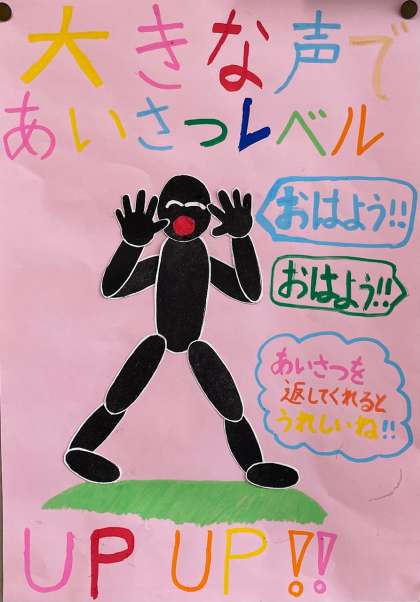 大きな声で
あいさつレベル
おはよう!!
おはよう!!
あいさつを
返してくれると
うれしいね!!
UP UP!!